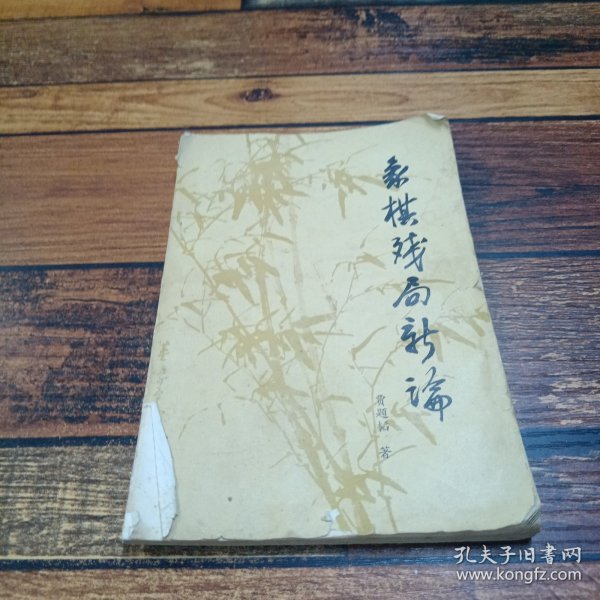 象棋残局新論
贾题韬 著
孔夫子旧书网
www.kongfz.com